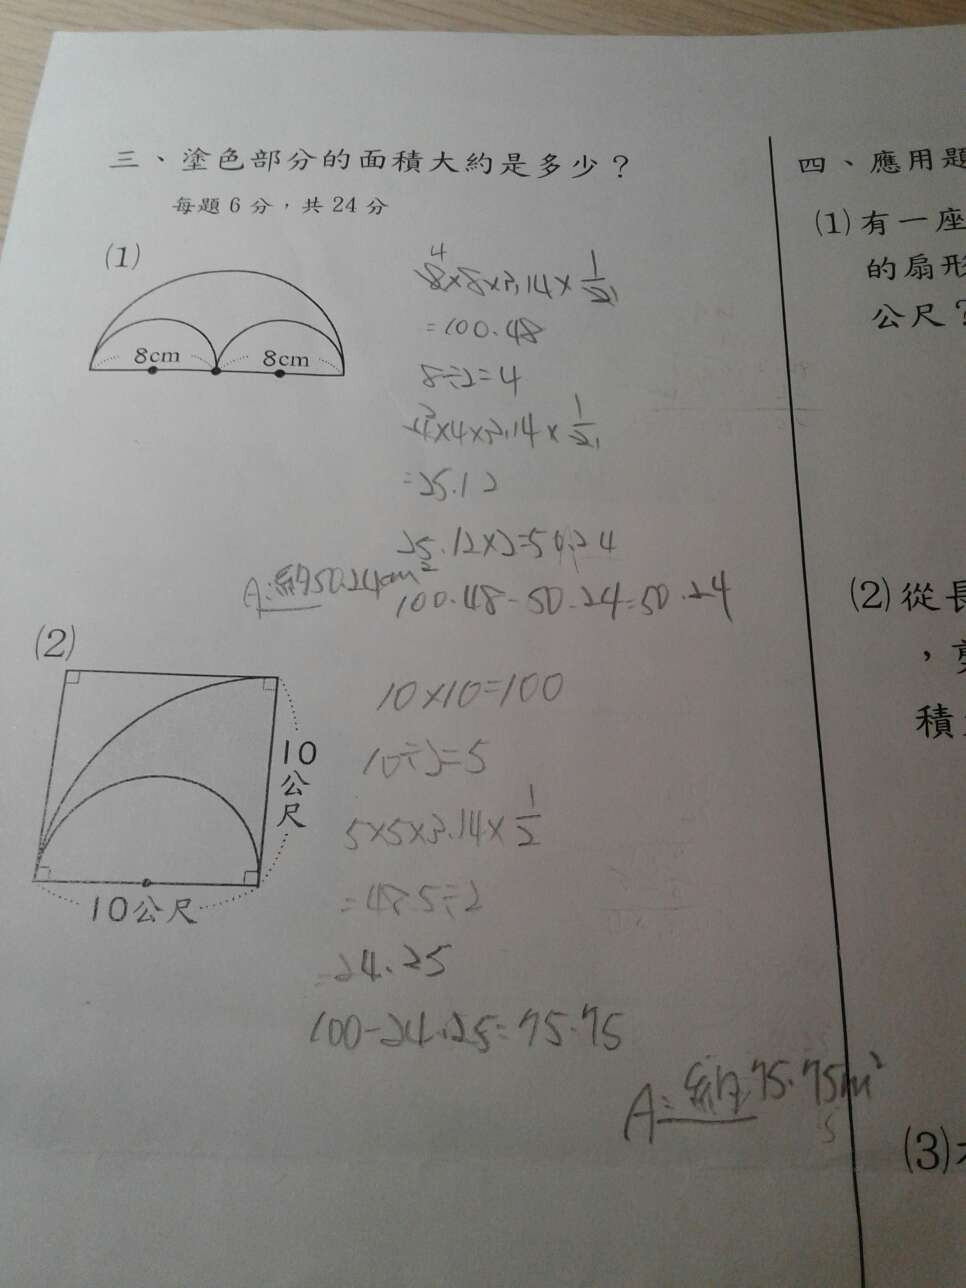 三、塗色部分的面積大約是多少？
每題6分，共24分
(1)
8cm
8cm
4
8×8×3.14×1/2 1
=100.48
8÷2=4
4×4×3.14×1/2 1
=25.12
25.12×2=50.24
100.48-50.24=50.24
A:約50.24cm²
(2)
10公尺
10公尺
10×10=100
10÷2=5
5×5×3.14×1/2
=48.5÷2
=24.25
100-24.25=75.75
A:約75.75m²
四、應用題
(1)有一座
的扇形
公尺?
(2)從長
積
(3)